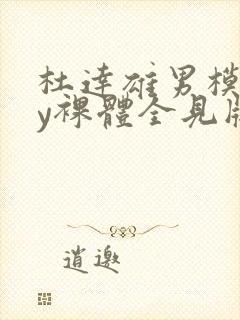 杜達雄男模
y裸體全見版
逍邀